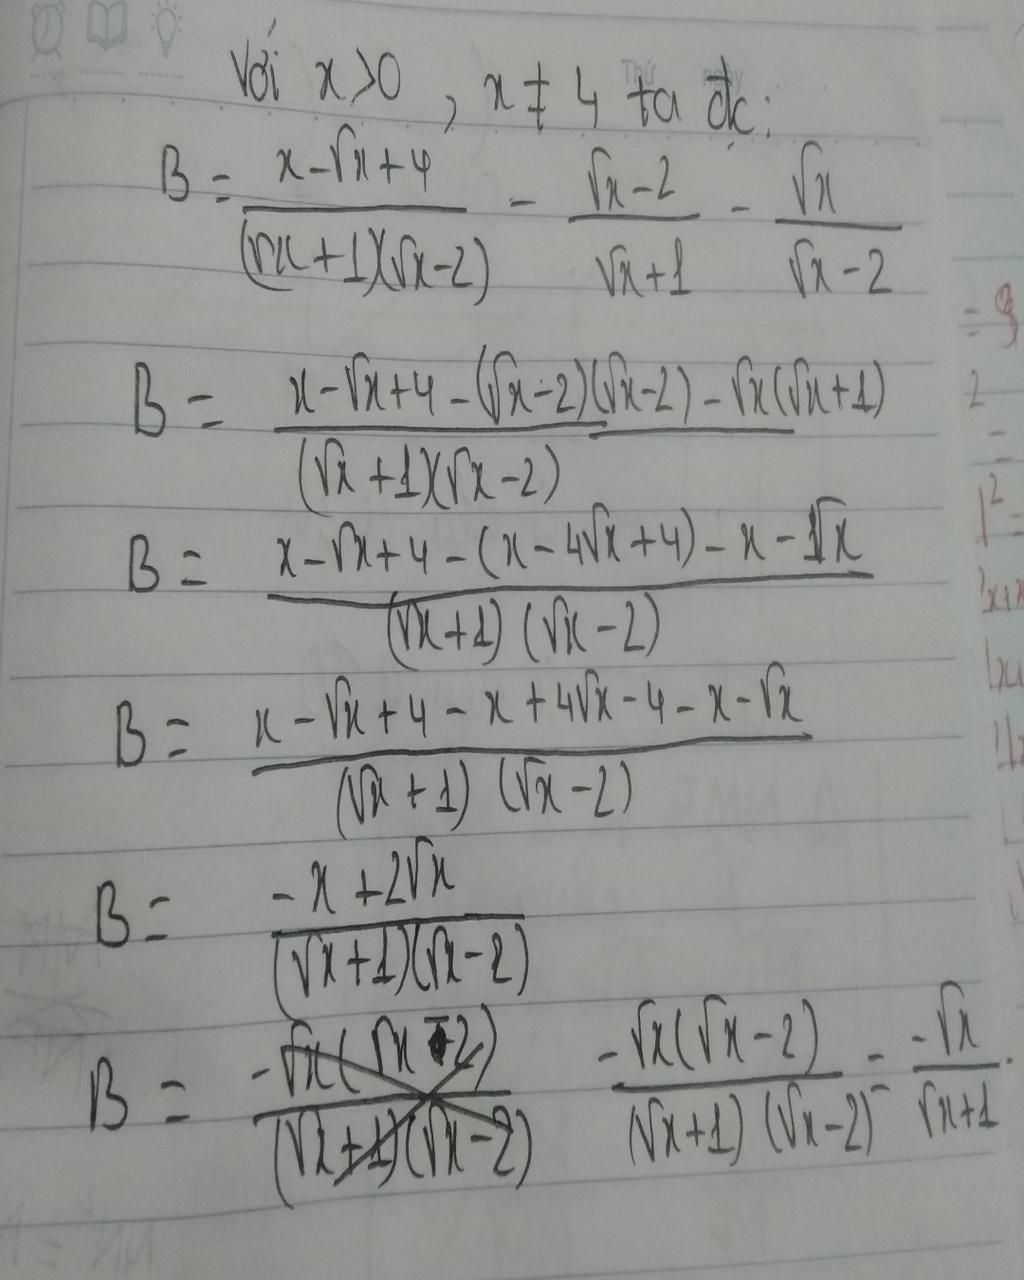 Thứ ngày
Với x>0, x ≠ 4 ta đc:
B = (x-√x+4)/((√x+1)(√x-2)) - (√x-2)/(√x+1) - √x/(√x-2)
B = (x-√x+4-(√x-2)(√x-2)-√x(√x+1))/((√x+1)(√x-2))
B = (x-√x+4-(x-4√x+4)-x-1√x)/((√x+1)(√x-2))
B = (x-√x+4-x+4√x-4-x-√x)/((√x+1)(√x-2))
B = (-x+2√x)/((√x+1)(√x-2))
B = -√x(√x-2)/((√x+1)(√x-2)) -√x(√x-2)/((√x+1)(√x-2)) = -√x/(√x+1).